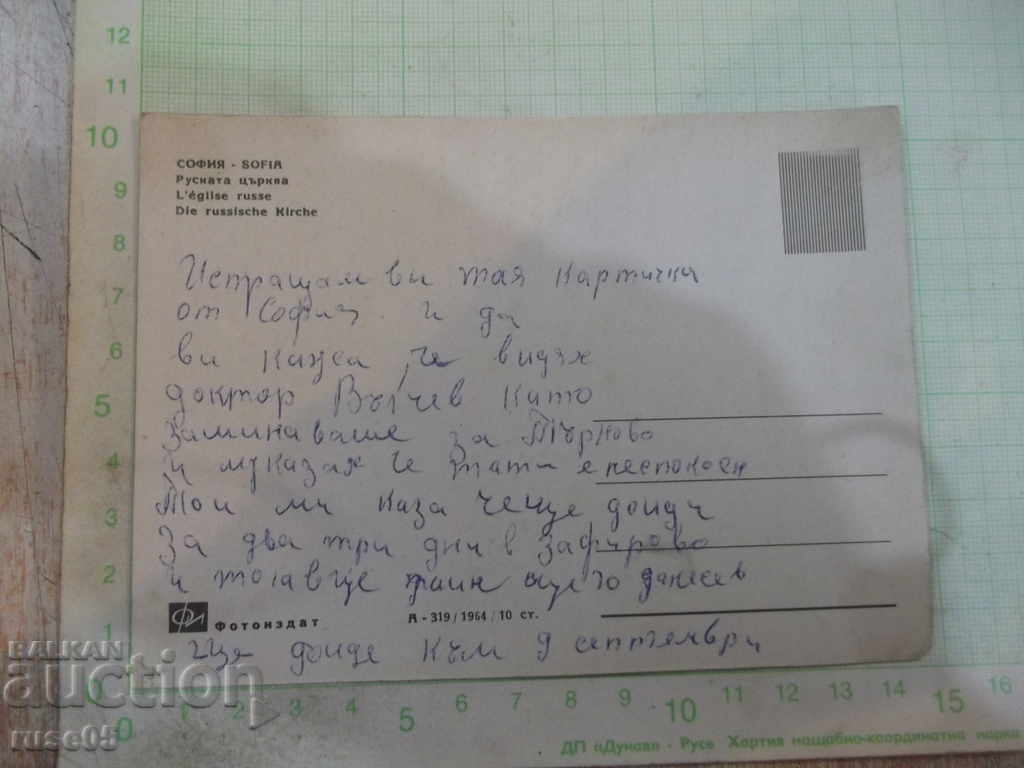 12
11
10
9
8
7
6
5
4
3
2
1
0
СОФИЯ - SOFIA
Руската църква
L'église russe
Die russische Kirche
Испращам ви тая картичка
от София и да
ви кажа, че видях
доктор Вълчев като
заминаваше за Търново
и му казах че тати е неспокоен
Той ми каза че ще дойде
за два три дни в Зафирово
и тогав ще
Фотоиздат
А - 319 / 1964 / 10 ст.
ще дойде към 9 септември
BALKAN
auction
ruse05
0 1 2 3 4 5 6 7 8 9 10 11 12 13 14 15 16
ДП «Дунав» - Русе Хартия мащабно-координатна марка